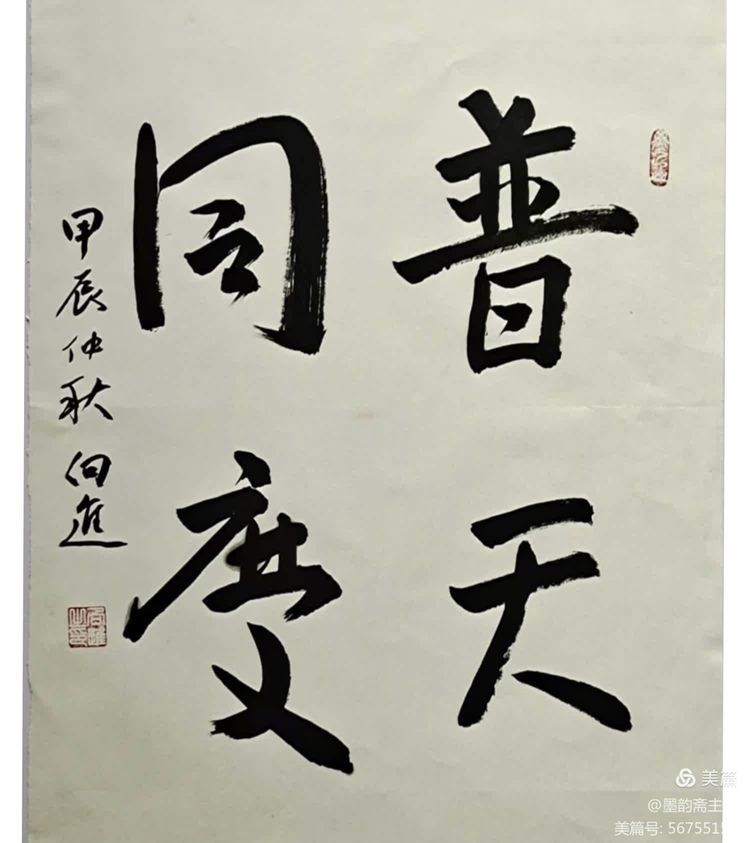 普天
同慶
甲辰仲秋 向進
美篇
@墨韵斋主
美篇号: 5675515